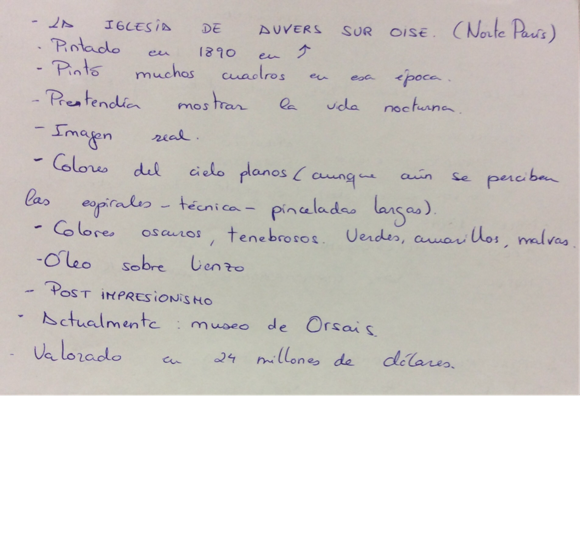 - LA IGLESIA DE AUVERS SUR OISE. (Norte París)
- Pintado en 1890 en ↑
- Pintó muchos cuadros en esa época.
- Pretendía mostrar la vida nocturna.
- Imagen real.
- Colores del cielo planos (aunque aún se perciben
las espirales - técnica - pinceladas largas).
- Colores oscuros, tenebrosos. Verdes, amarillos, malvas.
- Óleo sobre lienzo
- POST IMPRESIONISMO
- Actualmente: museo de Orsais.
- Valorado en 24 millones de dólares.